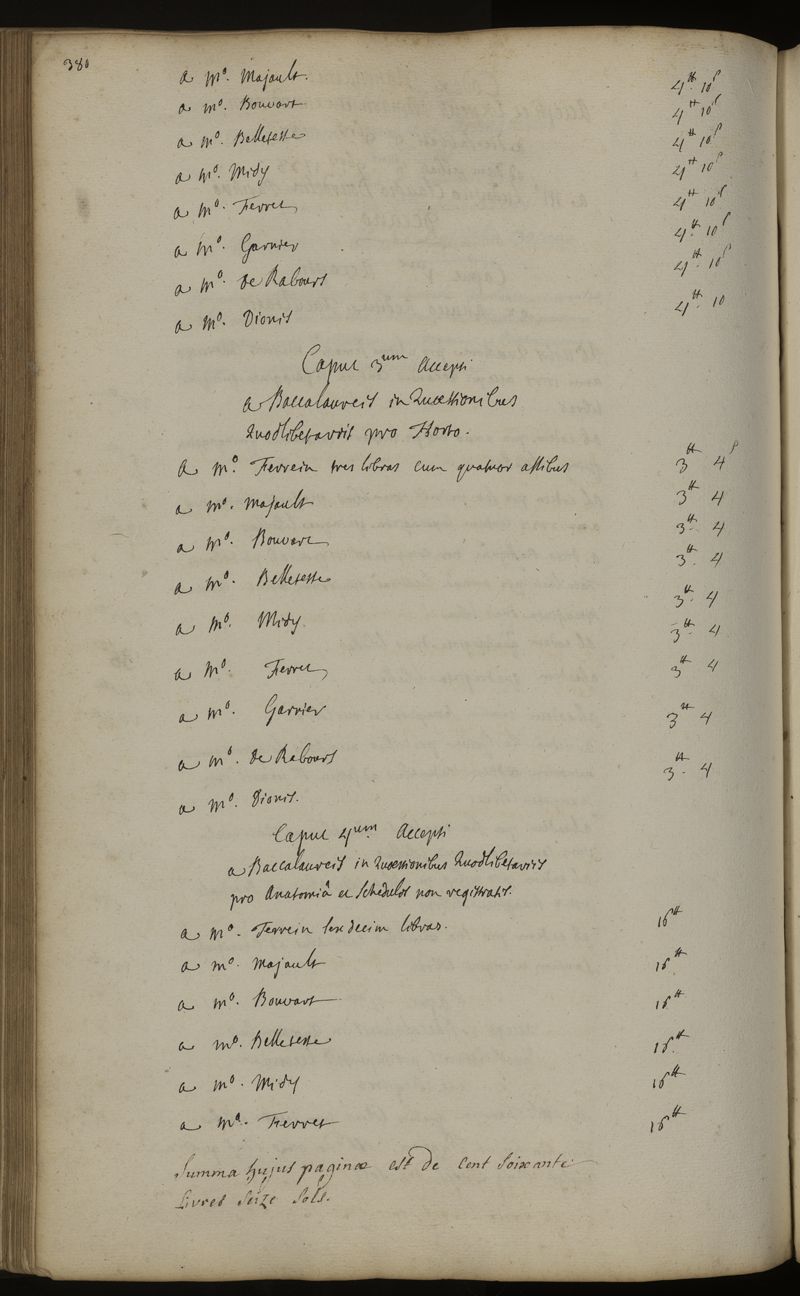 380
a Mo. Majault. 4# 10s
a mo. Bouvart 4# 10s
a Mo. Belleteste 4# 10s
a Mo. Midy 4# 10s
a Mo. Fievret 4# 10s
a Mo. Garnier 4# 10s
a Mo. de Rabours 4# 10s
a Mo. Dionis 4# 10
Caput 3um Accepti
a Baccalaureis in Quæstionibus
Quodlibetariis pro Horto.
A Mo. Ferrein tres libras cum quatuor assibus 3# 4s
a mo. Majault 3# 4
a Mo. Bouvart 3# 4
a Mo. Belleteste 3# 4
a Mo. Midy 3# 4
a Mo. Fievret 3# 4
a mo. Garnier 3# 4
a mo. de Rabours 3# 4
a Mo. Dionis. 3# 4
Caput 4um Accepti
a Baccalaureis in Quæstionibus Quodlibetariis
pro Anatomiâ et schedulis non registratis.
a Mo. Ferrein sexdecim libras. 16#
a mo. Majault 16#
a mo. Bouvart 16#
a mo. Belleteste 16#
a mo. Midy 16#
a Mo. Fievret 16#
Summa hujus paginæ est de Cent soixante
Livres seize sols.